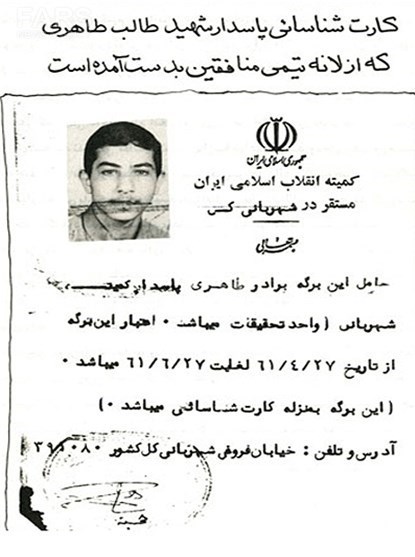 کارت شناسائی پاسدار شهید طالب طاهری
که از لانه تیمی منافقین بدست آمده است
جمهوری اسلامی ایران
کمیته انقلاب اسلامی ایران
مستقر در شهربانی کل
حامل این برگه برادر طاهری پاسدار کمیته
شهربانی (واحد تحقیقات میباشد ۰ اعتبار این برگه
از تاریخ ۶۱/۴/۲۷ لغایت ۶۱/۶/۲۷ میباشد ۰
(این برگه بمنزله کارت شناسائی میباشد ۰)
آدرس و تلفن : خیابان فروغی شهربانی کل کشور ۳۹۱۰۸۰